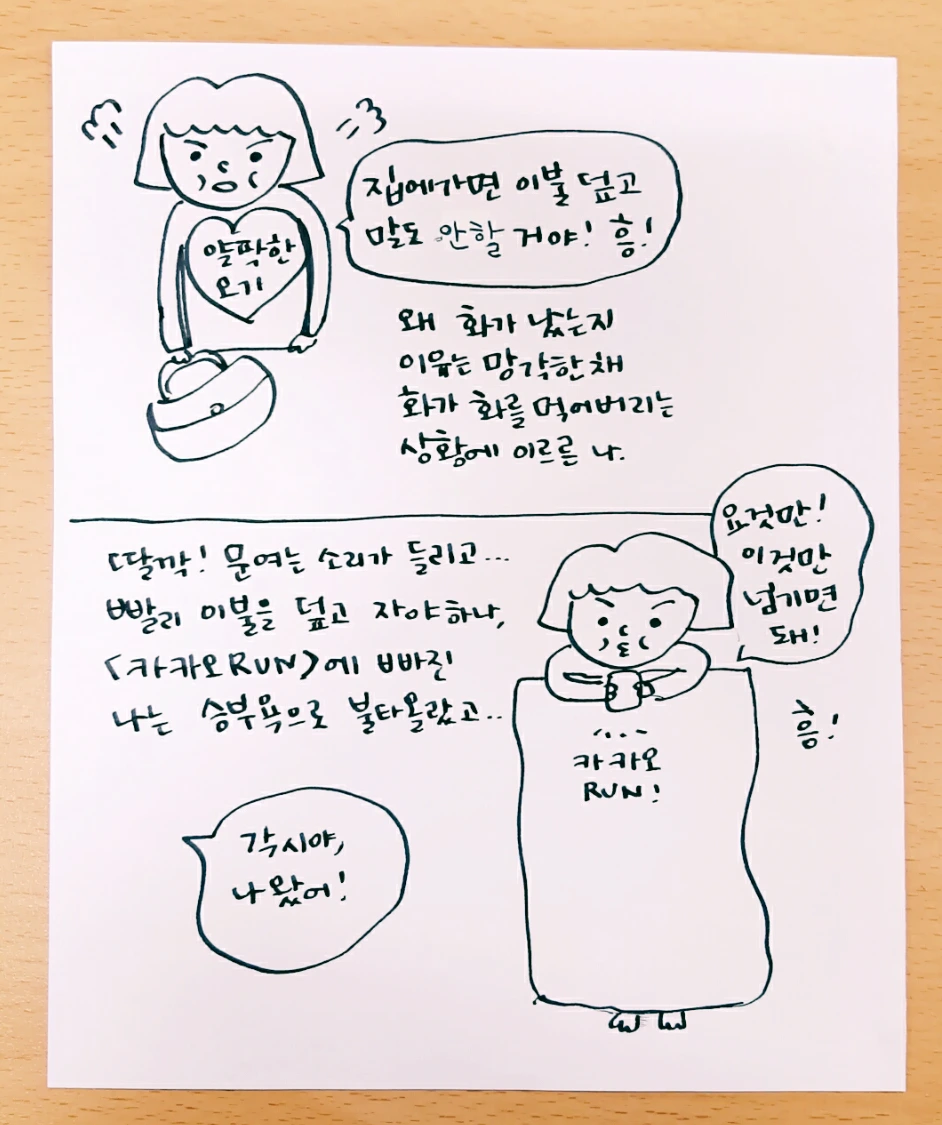 집에가면 이불 덮고
말도 안할 거야! 흥!
얄팍한
오기
왜 화가 났는지
이유는 망각한채
화가 화를 먹어버리는
상황에 이르른 나.
딸깍! 문여는 소리가 들리고...
빨리 이불을 덮고 자야하나,
<카카오RUN>에 빠진
나는 승부욕으로 불타올랐고..
요것만!
이것만
넘기면
돼!
흥!
카카오
RUN!
각시야,
나 왔어!